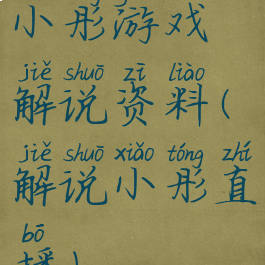 小彤游戏
jiě shuō zī liào
解说资料(
jiě shuō xiǎo tóng zhí
解说小彤直
bō
播)